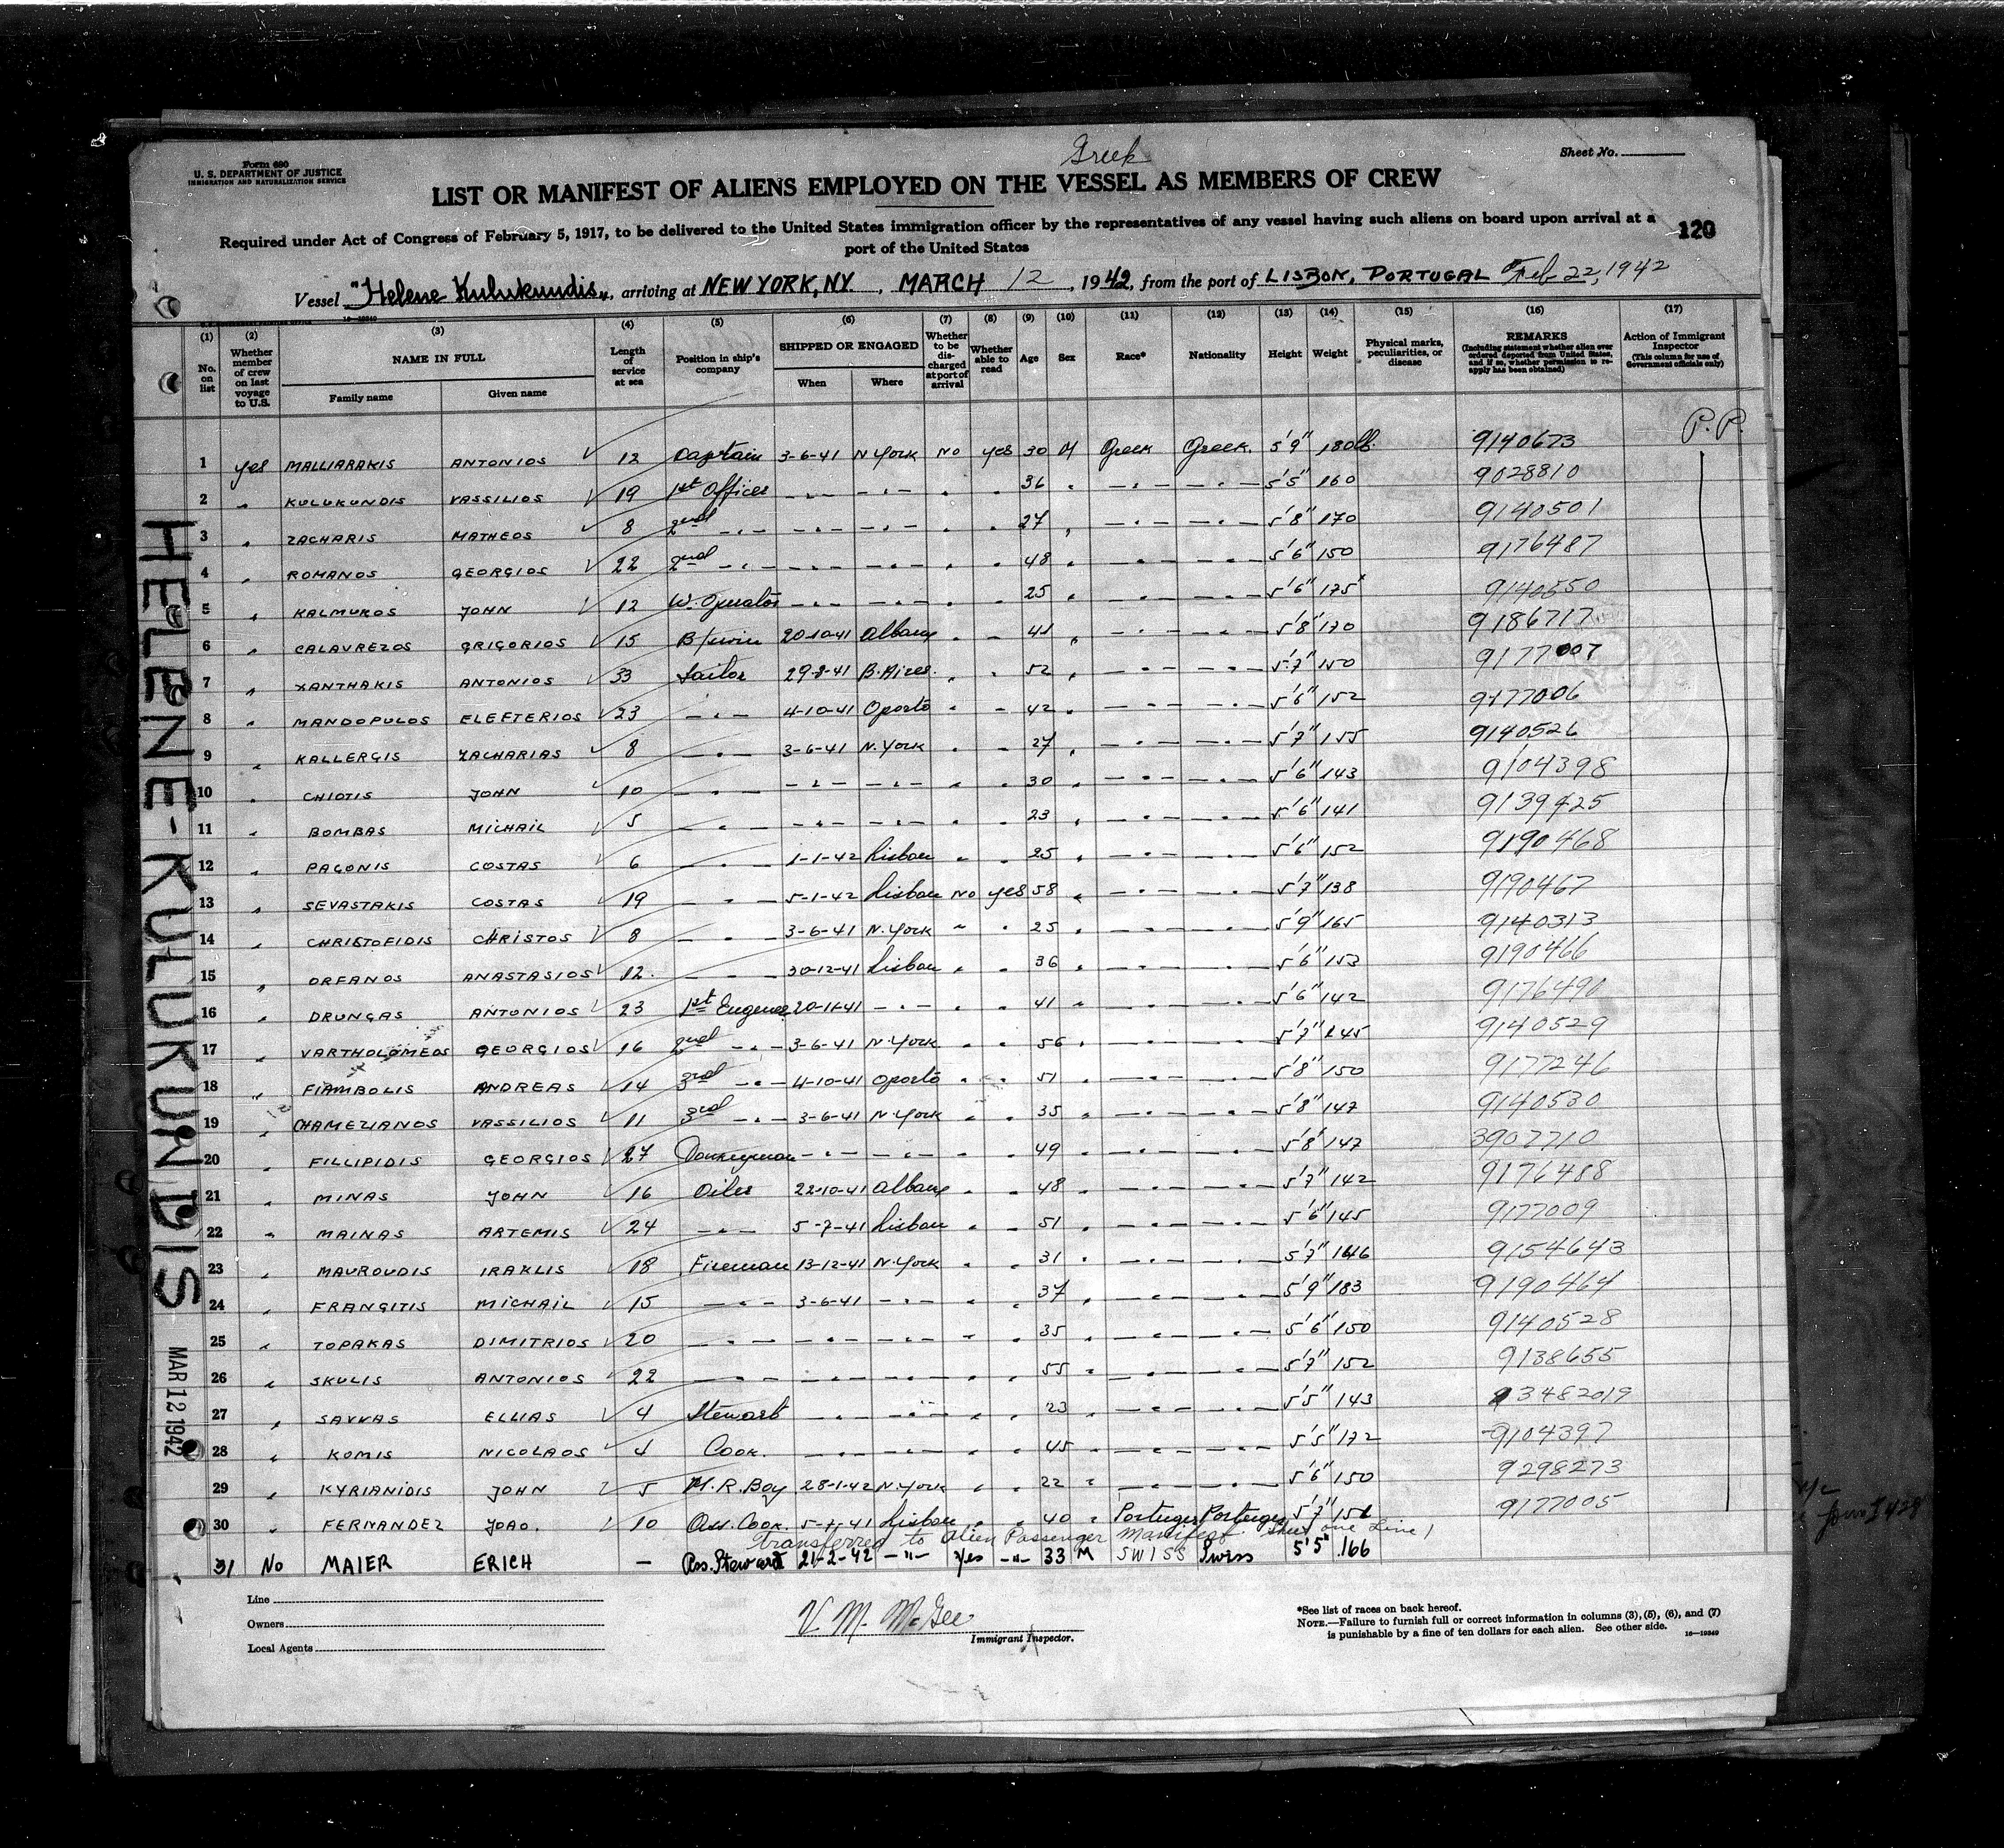 Greek
Form 680
U. S. DEPARTMENT OF JUSTICE
IMMIGRATION AND NATURALIZATION SERVICE
Sheet No.
LIST OR MANIFEST OF ALIENS EMPLOYED ON THE VESSEL AS MEMBERS OF CREW
Required under Act of Congress of February 5, 1917, to be delivered to the United States immigration officer by the representatives of any vessel having such aliens on board upon arrival at a
port of the United States
120
Vessel "Helene Kulukundis", arriving at NEW YORK, NY, MARCH 12, 1942, from the port of LISBON, PORTUGAL Feb 22, 1942
16—19340
(1) (2) (3) (4) (5) (6) (7) (8) (9) (10) (11) (12) (13) (14) (15) (16) (17)
No. on list
Whether member of crew on last voyage to U.S.
NAME IN FULL
Family name
Given name
Length of service at sea
Position in ship's company
SHIPPED OR ENGAGED
When
Where
Whether to be discharged at port of arrival
Whether able to read
Age
Sex
Race*
Nationality
Height
Weight
Physical marks, peculiarities, or disease
REMARKS
(Including statement whether alien ever ordered deported from United States, and if so, whether permission to reapply has been obtained)
Action of Immigrant Inspector
(This column for use of Government officials only)
P.P.
1 yes MALLIARAKIS ANTONIOS 12 Captain 3-6-41 N York No yes 30 M Greek Greek. 5'9" 180lb. 9140673
2 " KULUKUNDIS VASSILIOS 19 1st Officer 36 5'5" 160 9028810
3 " ZACHARIS MATHEOS 8 2nd 27 5'8" 170 9140501
4 " ROMANOS GEORGIOS 22 2nd 48 5'6" 150 9176487
5 " KALMUKOS JOHN 12 W. Operator 25 5'6" 175 9140550
6 " CALAVREZOS GRIGORIOS 15 20-10-41 Albany 41 5'8" 170 9186717
7 " XANTHAKIS ANTONIOS 33 Sailor 29-8-41 B. Aires. 52 5'7" 150 9177007
8 " MANDOPULOS ELEFTERIOS 23 4-10-41 Oporto 42 5'6" 152 9177006
9 " KALLERGIS ZACHARIAS 8 3-6-41 N. York 27 5'7" 155 9140526
10 " CHIOTIS JOHN 10 30 5'6" 143 9104398
11 " BOMBAS MICHAIL 5 23 5'6" 141 9139425
12 " PAGONIS COSTAS 6 1-1-42 Lisbon 25 5'6" 152 9190468
13 " SEVASTAKIS COSTAS 19 5-1-42 Lisbon No yes 58 5'7" 138 9190467
14 " CHRISTOFIDIS CHRISTOS 8 3-6-41 N. York 25 5'9" 165 9140313
15 " ORFANOS ANASTASIOS 12 30-12-41 Lisbon 36 5'6" 153 9190466
16 " DRUNGAS ANTONIOS 23 1st Engeneer 20-11-41 41 5'6" 142 9176490
17 " VARTHOLOMEOS GEORGIOS 16 2nd 3-6-41 N. York 56 5'7" 145 9140529
18 " FIAMBOLIS ANDREAS 14 3rd 4-10-41 Oporto 51 5'8" 150 9177246
19 " CHAMEZIANOS VASSILIOS 11 3rd 3-6-41 N. York 35 5'8" 147 9140530
20 " FILLIPIDIS GEORGIOS 27 Donkeyman 49 5'8" 147 3907710
21 " MINAS JOHN 16 Oiler 22-10-41 Albany 48 5'7" 142 9176488
22 " MAINAS ARTEMIS 24 5-7-41 Lisbon 51 5'6" 145 9177009
23 " MAVROUDIS IRAKLIS 18 Fireman 13-12-41 N. York 31 5'7" 146 9154643
24 " FRANGITIS MICHAIL 15 3-6-41 37 5'9" 183 9190464
25 " TOPAKAS DIMITRIOS 20 35 5'6" 150 9140528
26 " SKULIS ANTONIOS 22 55 5'7" 152 9138655
27 " SAVVAS ELLIAS 4 Stewart 23 5'5" 143 3482019
28 " KOMIS NICOLAOS 4 Cook. 45 5'5" 172 9104397
29 " KYRIANIDIS JOHN 5 M. R. Boy 28-1-42 N. York 22 5'6" 150 9298273
30 " FERNANDEZ JOAO. 10 Ass. Cook. 5-7-41 Lisbon 40 Portuges Portuges 5'7" 151 9177005
transferred to Alien Passenger Manifest. Sheet one Line 1
31 No MAIER ERICH — Pas. Steward 21-2-42 —"— Yes —"— 33 M SWISS Swiss 5'5" 166
HELENE-KULUKUNDIS
MAR 12 1942
Line
Owners
Local Agents
V M. McGee
Immigrant Inspector.
*See list of races on back hereof.
NOTE.—Failure to furnish full or correct information in columns (3), (5), (6), and (7)
is punishable by a fine of ten dollars for each alien. See other side.
16—19340